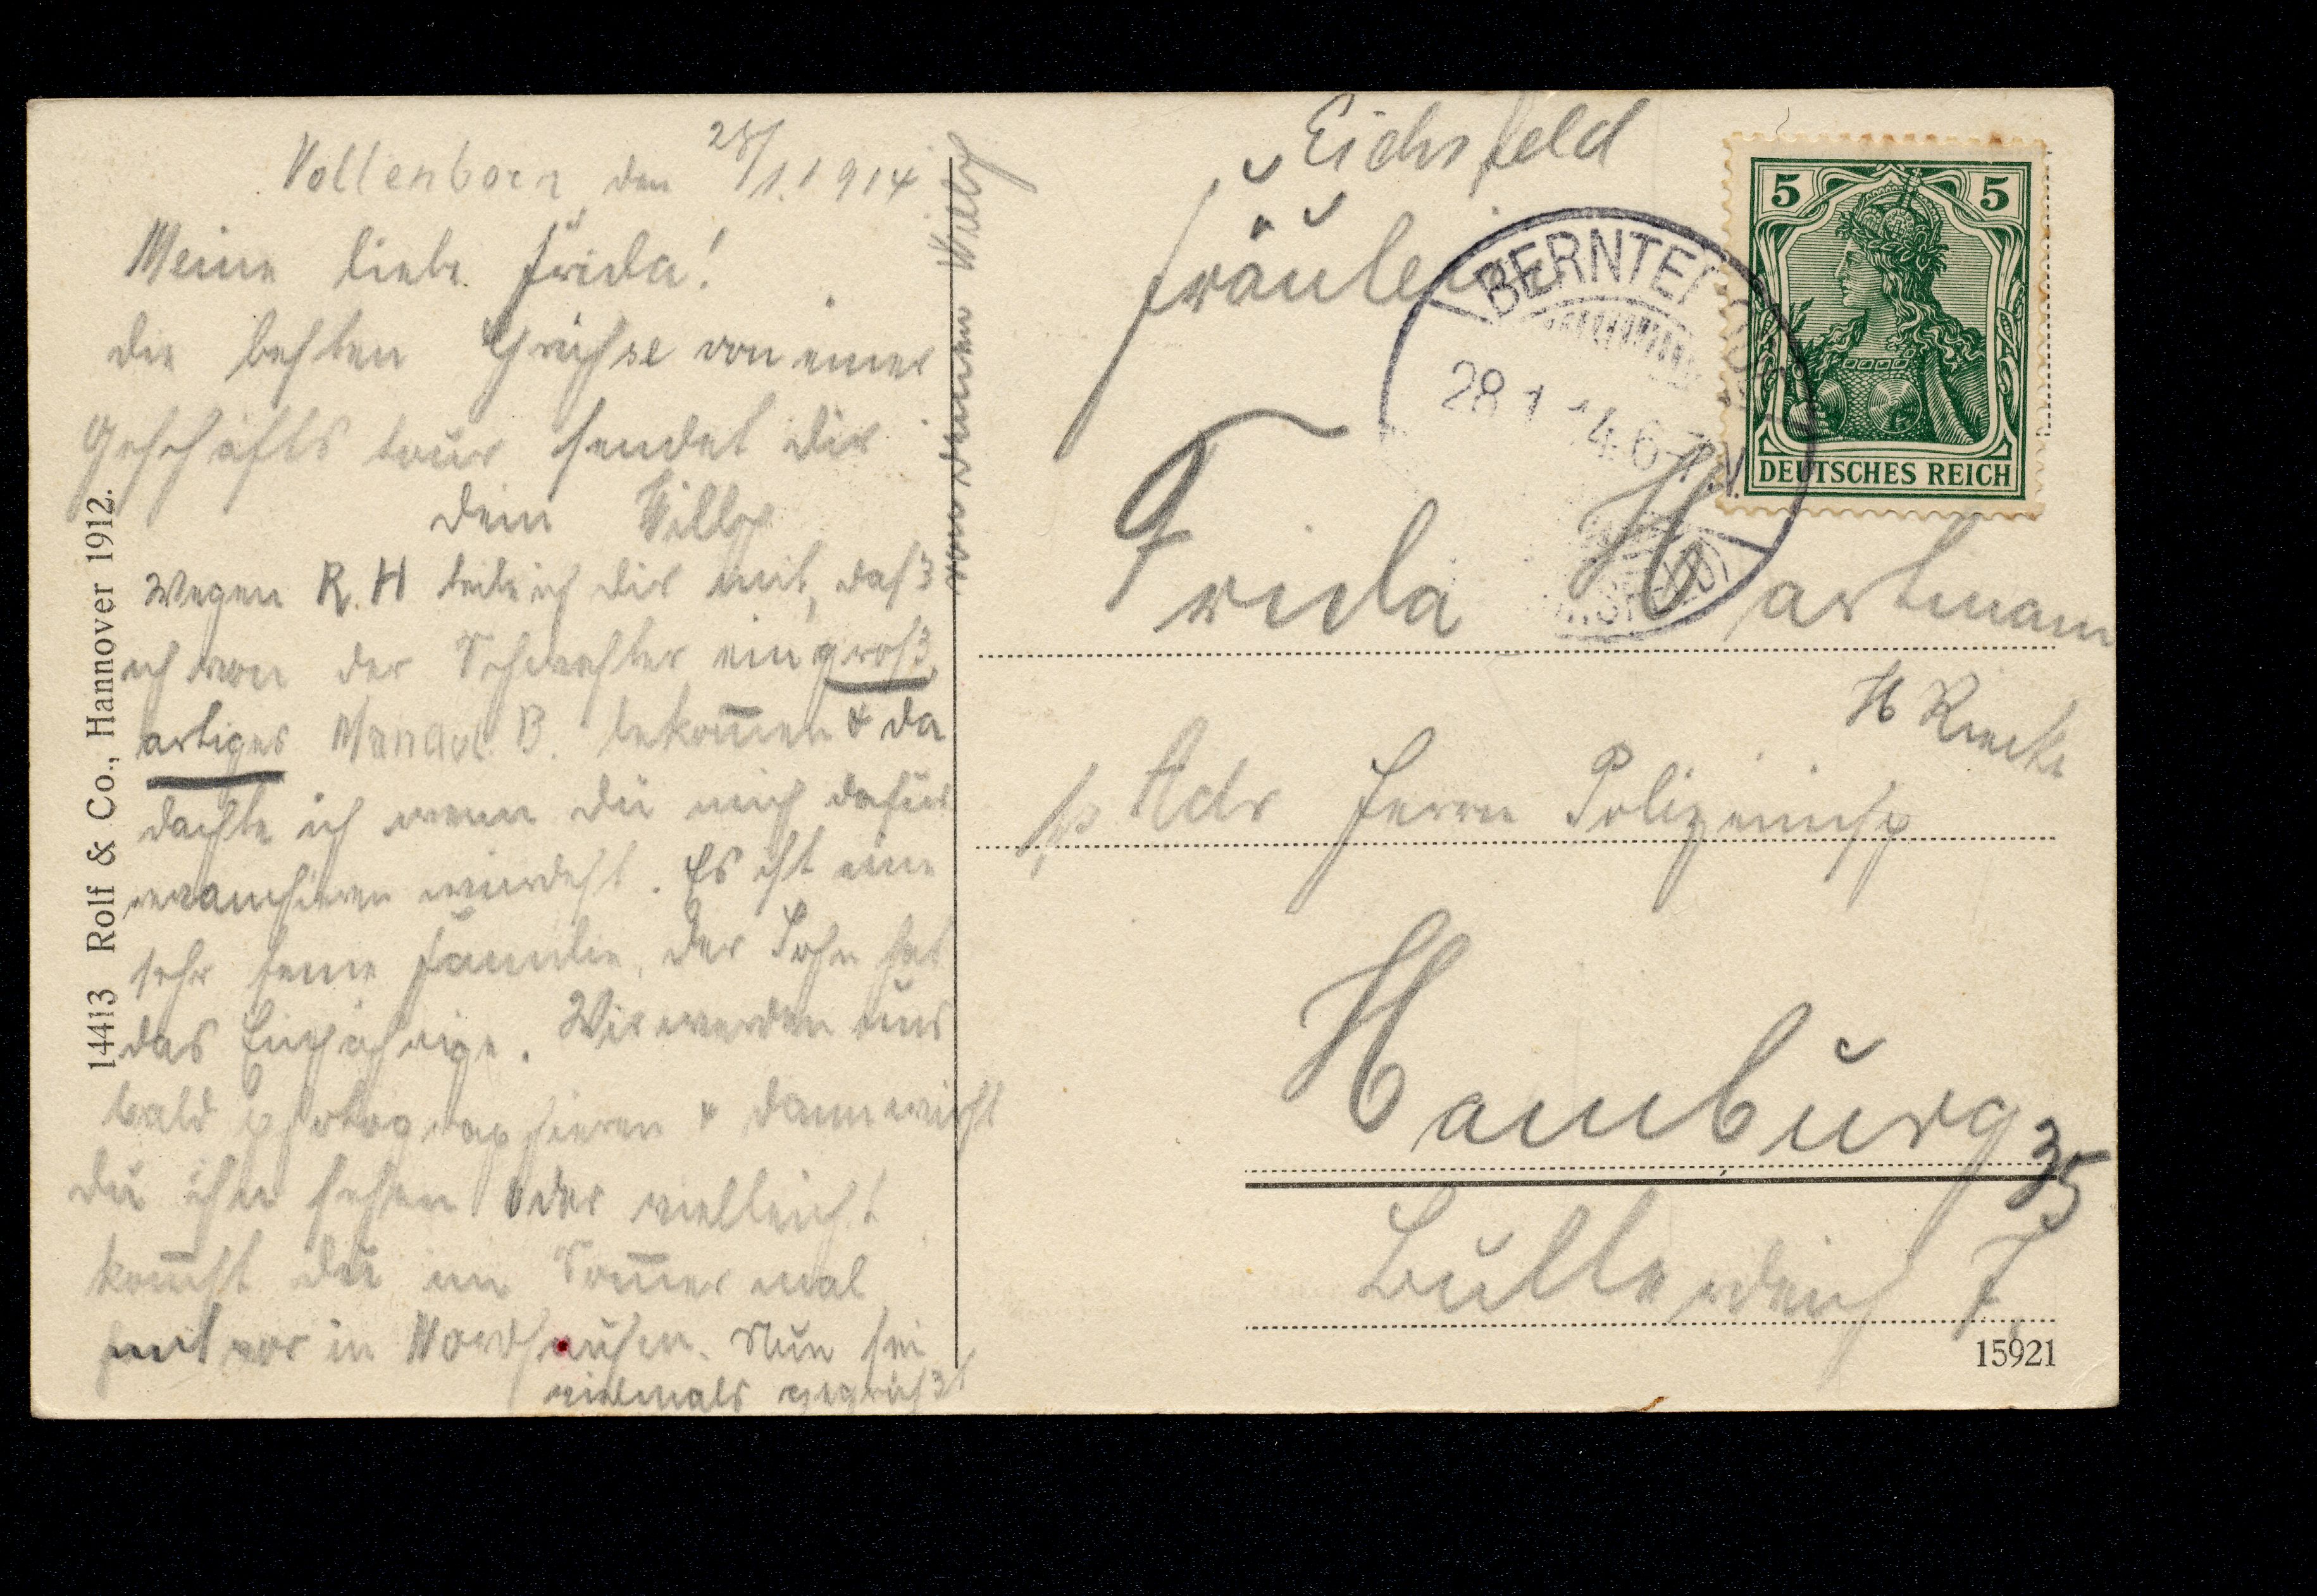 Vollenborn den 28/1.1914
Meine liebe Frida!
die besten Grüsse von einer
Geschäfts tour sendet dir
dein Willy
Wegen R. H teile ich dir mit, daß
ich von der Schwester ein groß
artiges B. bekom̅en & da
dachte ich wenn du mich dafür
revanchieren würdest. Es ist eine
sehr feine Familie, der Sohn hat
das Einjährige. Wir werden uns
bald photographieren & dann wirst
du ihn sehen oder vielleicht
kom̅st du im Som̅er mal
vor in Nordhausen. Nun sei
vielmals gegrüßt
von deinem Willy
14413 Rolf & Co., Hannover 1912.
Eichsfeld
Fräulein
Frida Hartmann
H Rieck
p Adr Herrn Polizeiinsp
Hamburg 35
Bullerdeich 7
15921
BERNTERODE
28.1.14.6-7N.
5 5
DEUTSCHES REICH